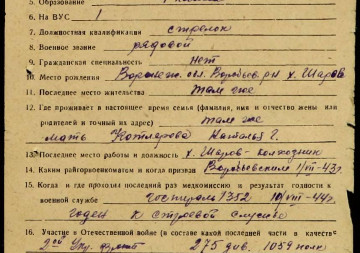 5. Образование
6. На ВУС 1
7. Должностная квалификация стрелок
8. Военное звание рядовой
9. Гражданская специальность нет
10. Место рождения Воронеж. обл. Воробьев. р-н х. Шаров
11. Последнее место жительства там же
12. Где проживает в настоящее время семья (фамилия, имя и отчество жены или
родителей и точный их адрес) там же
мать Котлярова Наталья Г.
13. Последнее место работы и должность х. Шаров - колхозник
14. Каким райгорвоенкоматом и когда призван Воробьевским 1/VIII-43 г.
15. Когда и где проходил последний раз медкомиссию и результат годности к
военной службе госпиталь 1352 10/VIII-44 г.
годен к строевой службе
16. Участие в Отечественной войне (в составе какой последней части в качестве
2ой Укр. фронт 275 див. 1059 полк